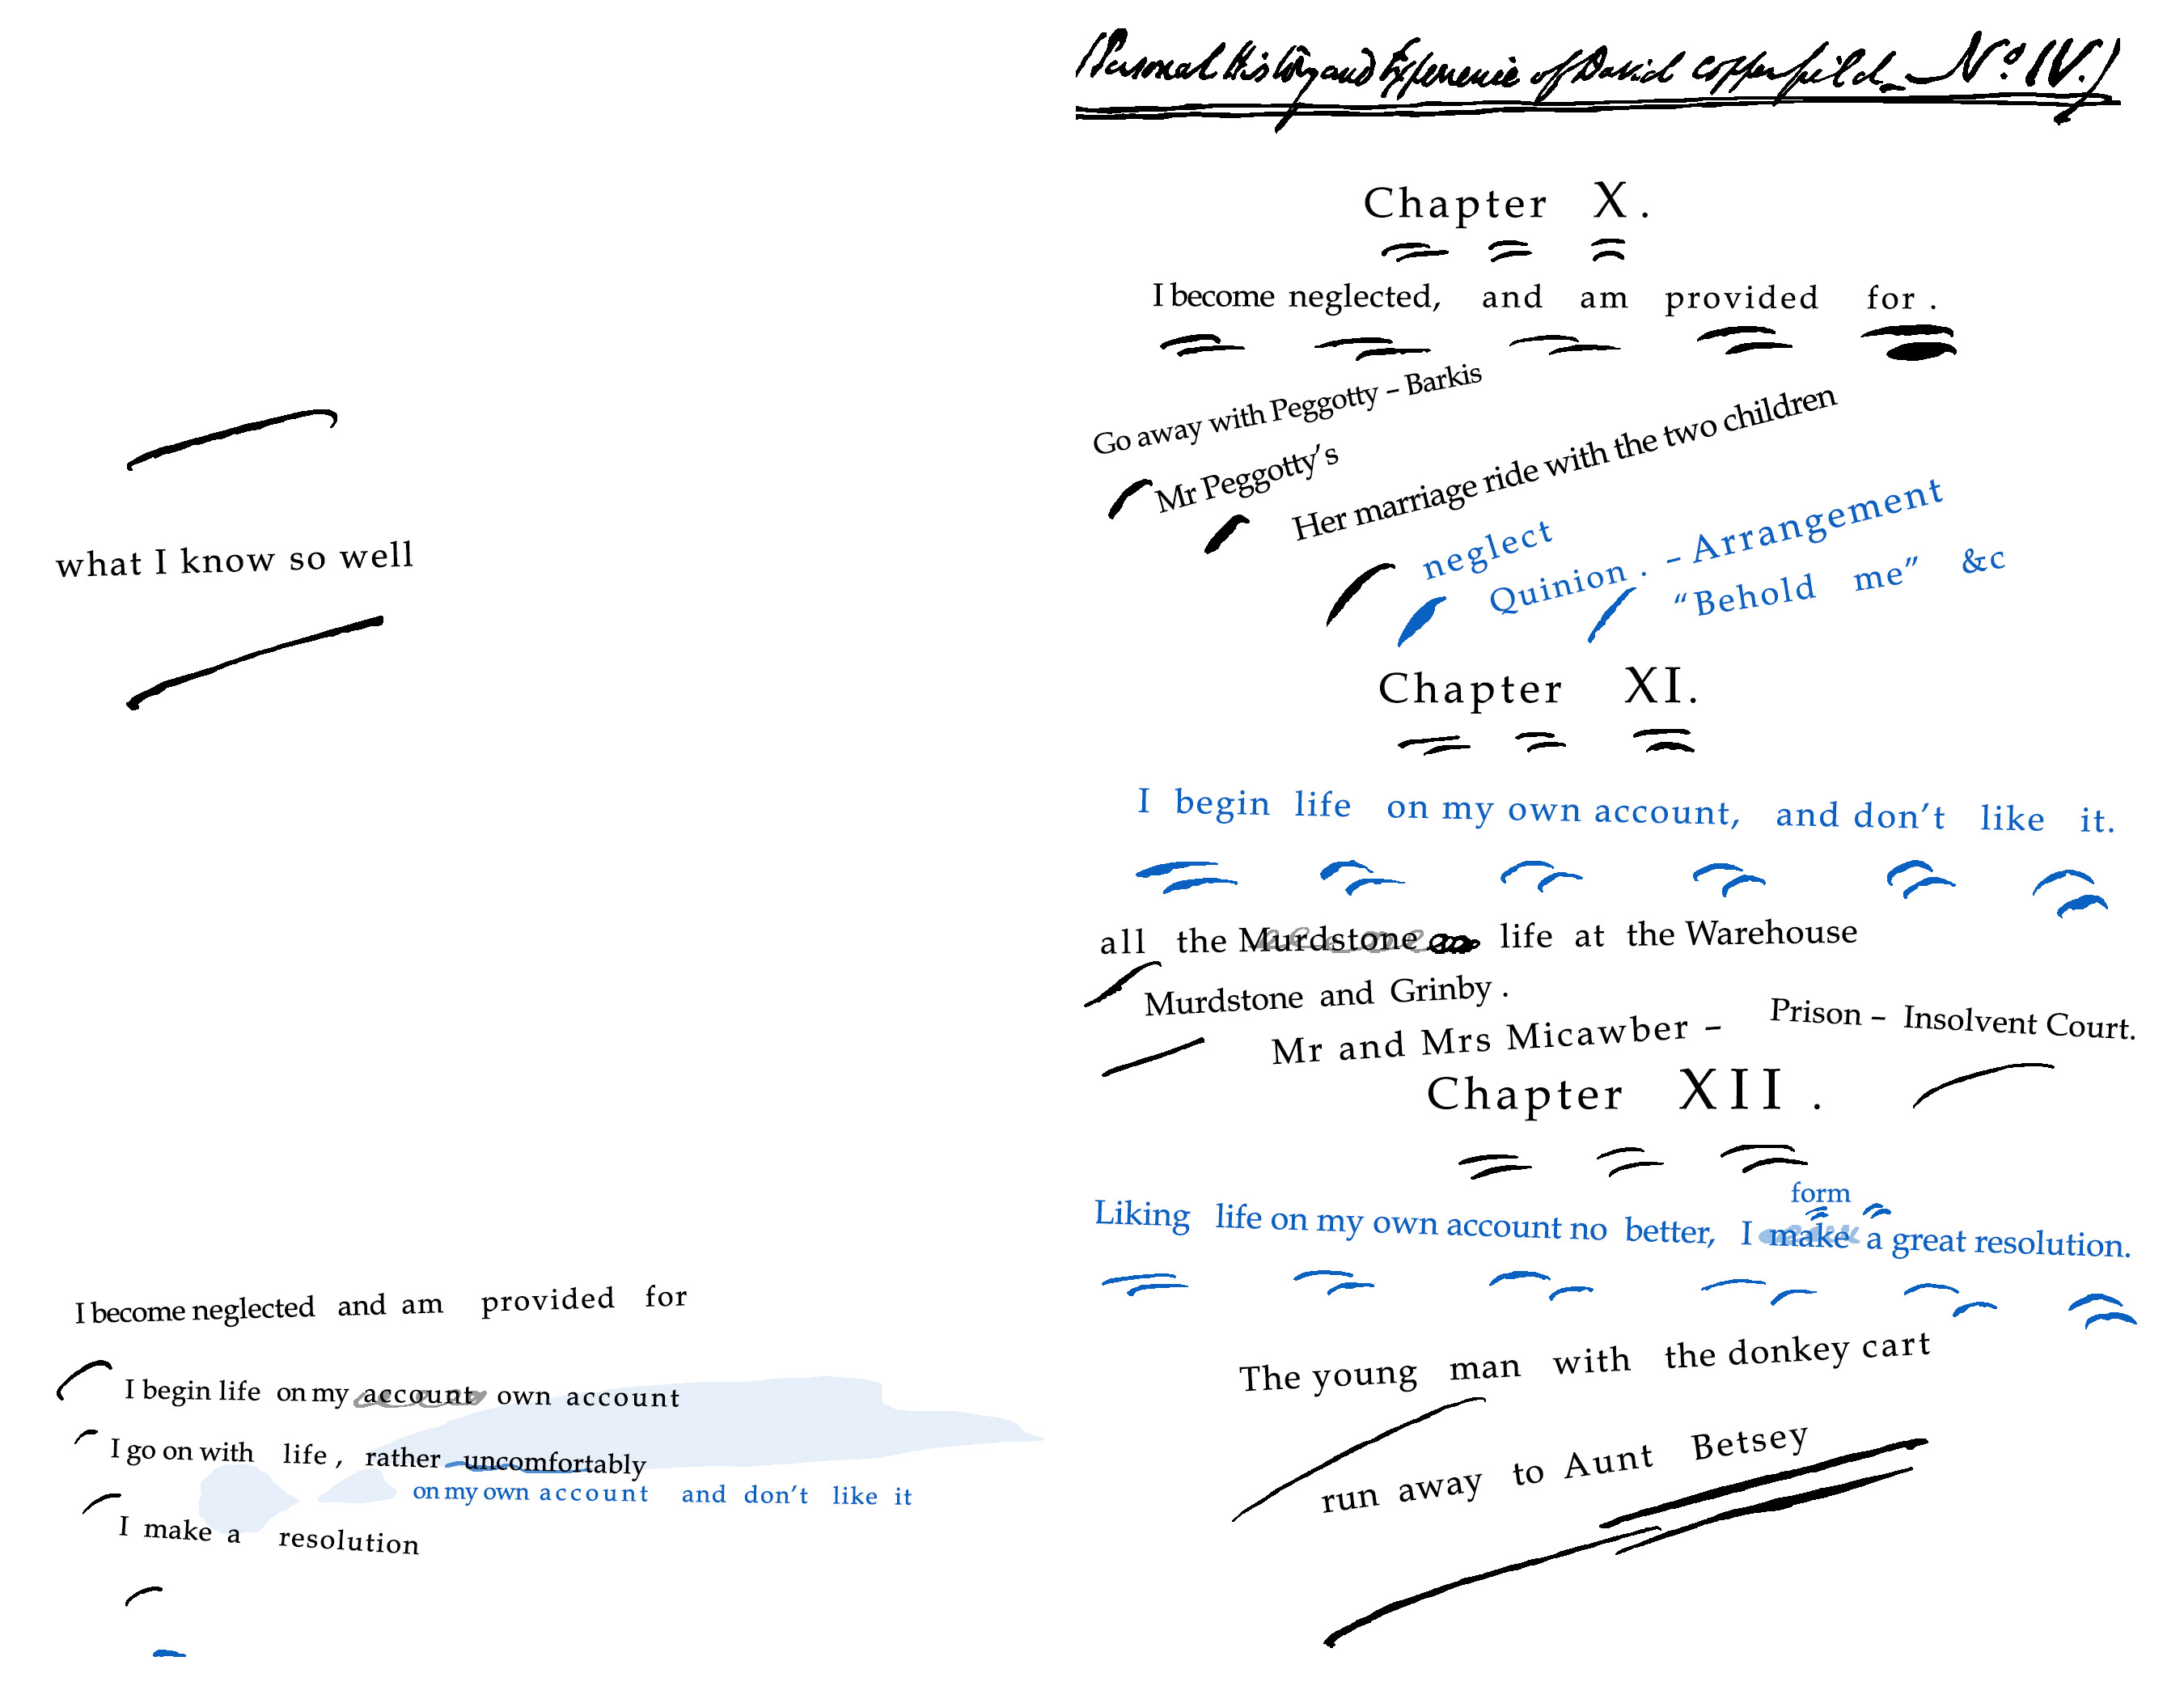 what I know so well
I become neglected and am provided for
I begin life on my account own account
I go on with life, rather uncomfortably
on my own account and don't like it
I make a resolution
(Personal History and Experience of David Copperfield – No. IV.)
Chapter X.
I become neglected, and am provided for.
Go away with Peggotty – Barkis
Mr Peggotty's
Her marriage ride with the two children
neglect
Quinion. – Arrangement
"Behold me" &c
Chapter XI.
I begin life on my own account, and don't like it.
all the Murdstone life at the Warehouse
Murdstone and Grinby.
Mr and Mrs Micawber – Prison – Insolvent Court.
Chapter XII.
form
Liking life on my own account no better, I make a great resolution.
The young man with the donkey cart
run away to Aunt Betsey